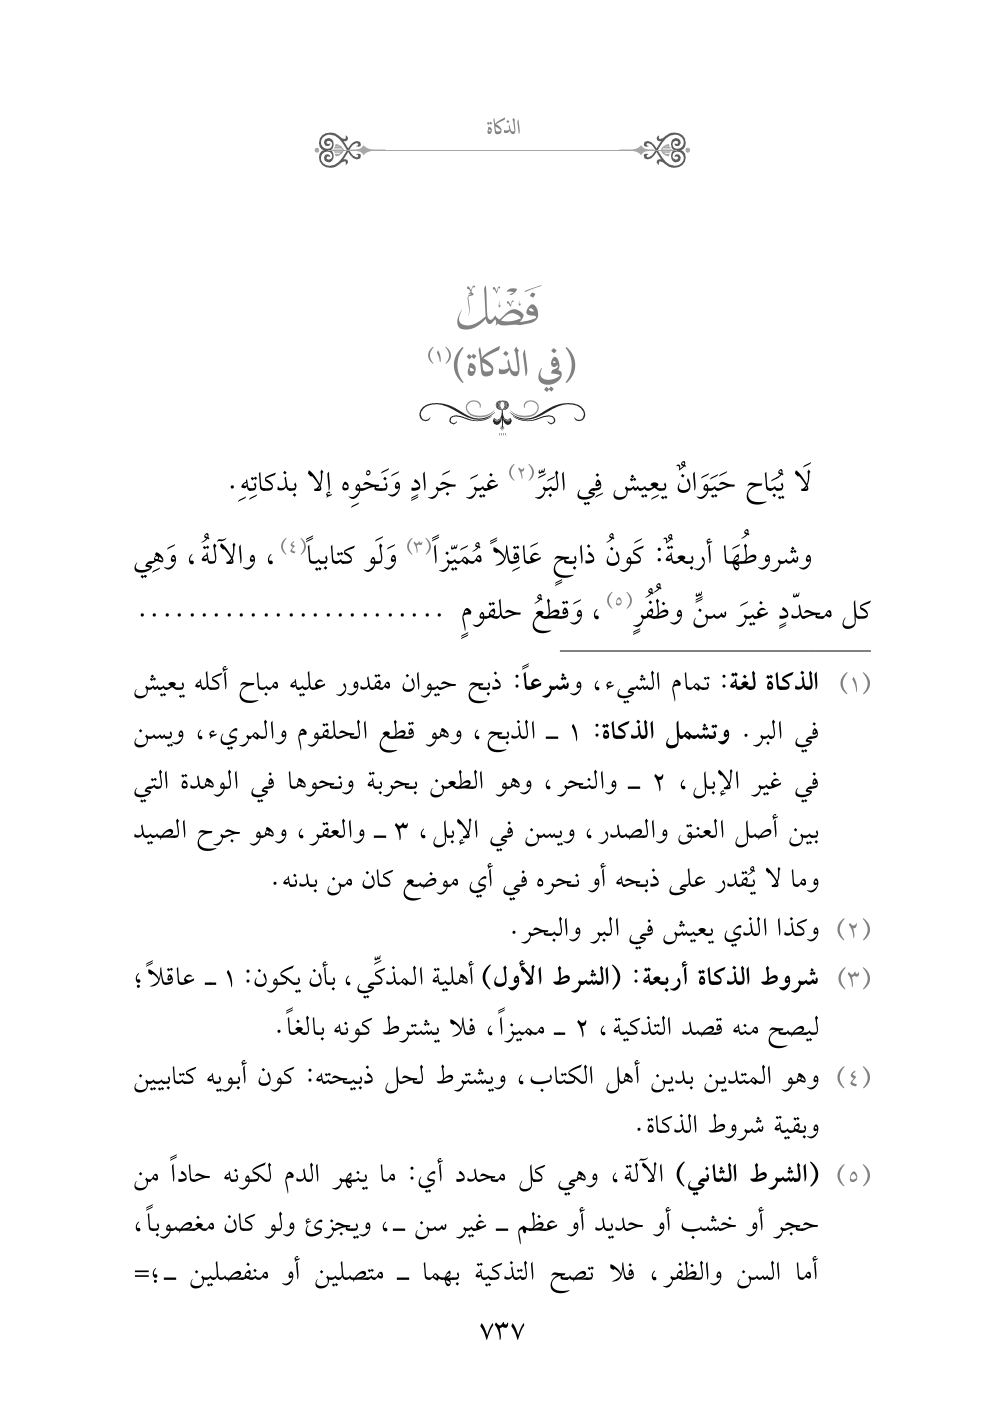 الذكاة
فَصْل
(في الذكاة)(١)
لَا يُبَاح حَيَوَانٌ يعِيش فِي البَرِّ(٢) غيرَ جَرادٍ وَنَحْوِه إلا بذكاتِهِ.
وشروطُهَا أربعةٌ: كَونُ ذابحٍ عَاقِلاً مُمَيّزاً(٣) وَلَو كتابياً(٤)، والآلةُ، وَهِي
كل محدّدٍ غيرَ سنٍّ وظُفُرٍ(٥)، وَقطعُ حلقومٍ .........................
(١) الذكاة لغة: تمام الشيء، وشرعاً: ذبح حيوان مقدور عليه مباح أكله يعيش
في البر. وتشمل الذكاة: ١ ـ الذبح، وهو قطع الحلقوم والمريء، ويسن
في غير الإبل، ٢ ـ والنحر، وهو الطعن بحربة ونحوها في الوهدة التي
بين أصل العنق والصدر، ويسن في الإبل، ٣ ـ والعقر، وهو جرح الصيد
وما لا يُقدر على ذبحه أو نحره في أي موضع كان من بدنه.
(٢) وكذا الذي يعيش في البر والبحر.
(٣) شروط الذكاة أربعة: (الشرط الأول) أهلية المذكِّي، بأن يكون: ١ ـ عاقلاً؛
ليصح منه قصد التذكية، ٢ ـ مميزاً، فلا يشترط كونه بالغاً.
(٤) وهو المتدين بدين أهل الكتاب، ويشترط لحل ذبيحته: كون أبويه كتابيين
وبقية شروط الذكاة.
(٥) (الشرط الثاني) الآلة، وهي كل محدد أي: ما ينهر الدم لكونه حاداً من
حجر أو خشب أو حديد أو عظم ـ غير سن ـ، ويجزئ ولو كان مغصوباً،
أما السن والظفر، فلا تصح التذكية بهما ـ متصلين أو منفصلين ـ؛=
٧٣٧